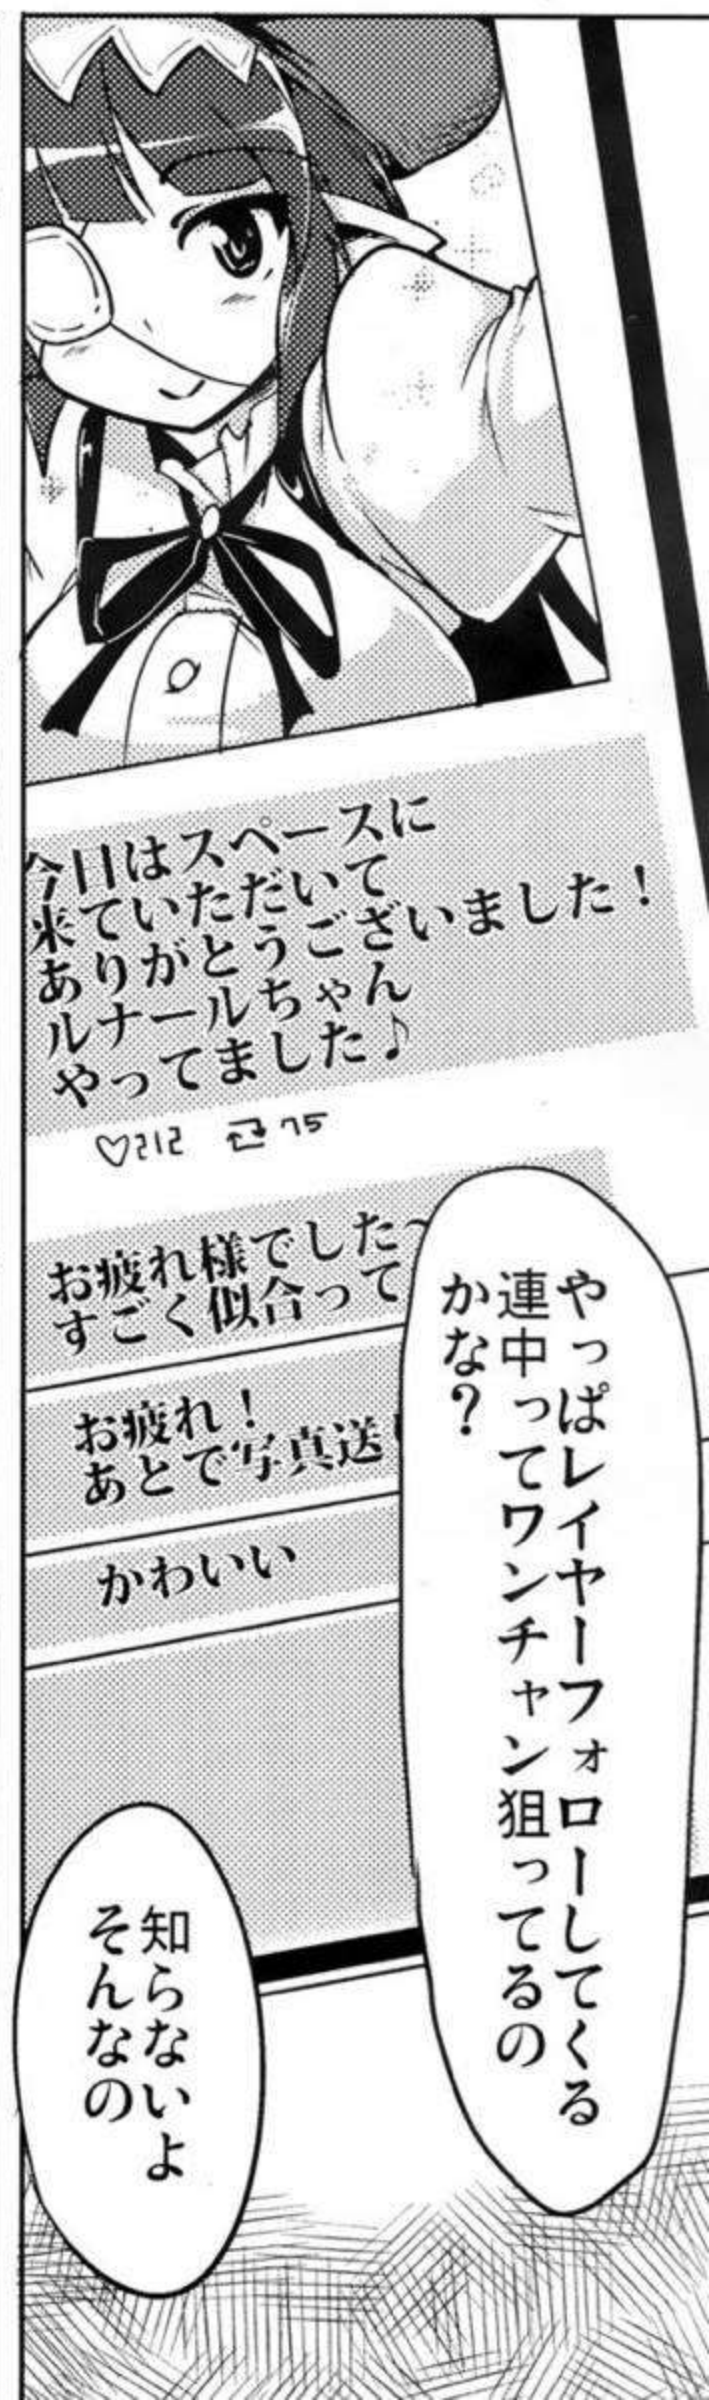 今日はスペースに
来ていただいて
ありがとうございました！
ルナールちゃん
やってました♪
♡212 75
お疲れ様でした〜
すごく似合って
お疲れ！
あとで写真送
かわいい
やっぱレイヤーフォローしてくる
連中ってワンチャン狙ってるの
かな？
知らないよ
そんなの